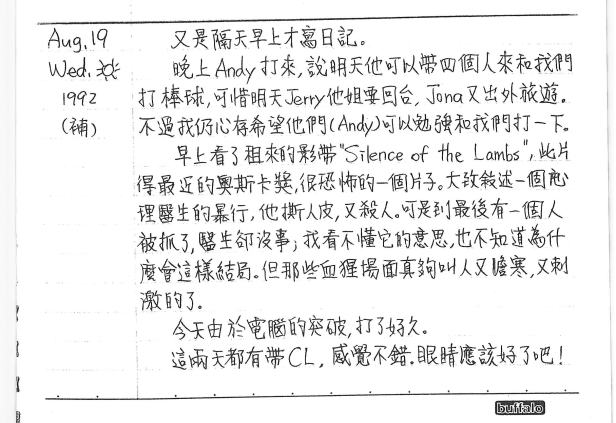 Aug. 19
Wed.
1992
(補)
又是隔天早上才寫日記。
晚上Andy打來,說明天他可以帶四個人來和我們
打棒球,可惜明天Jerry他姐要回台,Jona又出外旅遊。
不過我仍心存希望他們(Andy)可以勉強和我們打一下。
早上看了租來的影帶"Silence of the Lambs",此片
得最近的奧斯卡獎,很恐怖的一個片子。大致敘述一個心
理醫生的暴行,他撕人皮,又殺人。可是到最後有一個人
被抓了,醫生卻沒事;我看不懂它的意思,也不知道為什
麼會這樣結局。但那些血猩場面真夠叫人又膽寒,又刺
激的了。
今天由於電腦的突破,打了好久。
這兩天都有帶CL,感覺不錯.眼睛應該好了吧!
buffalo